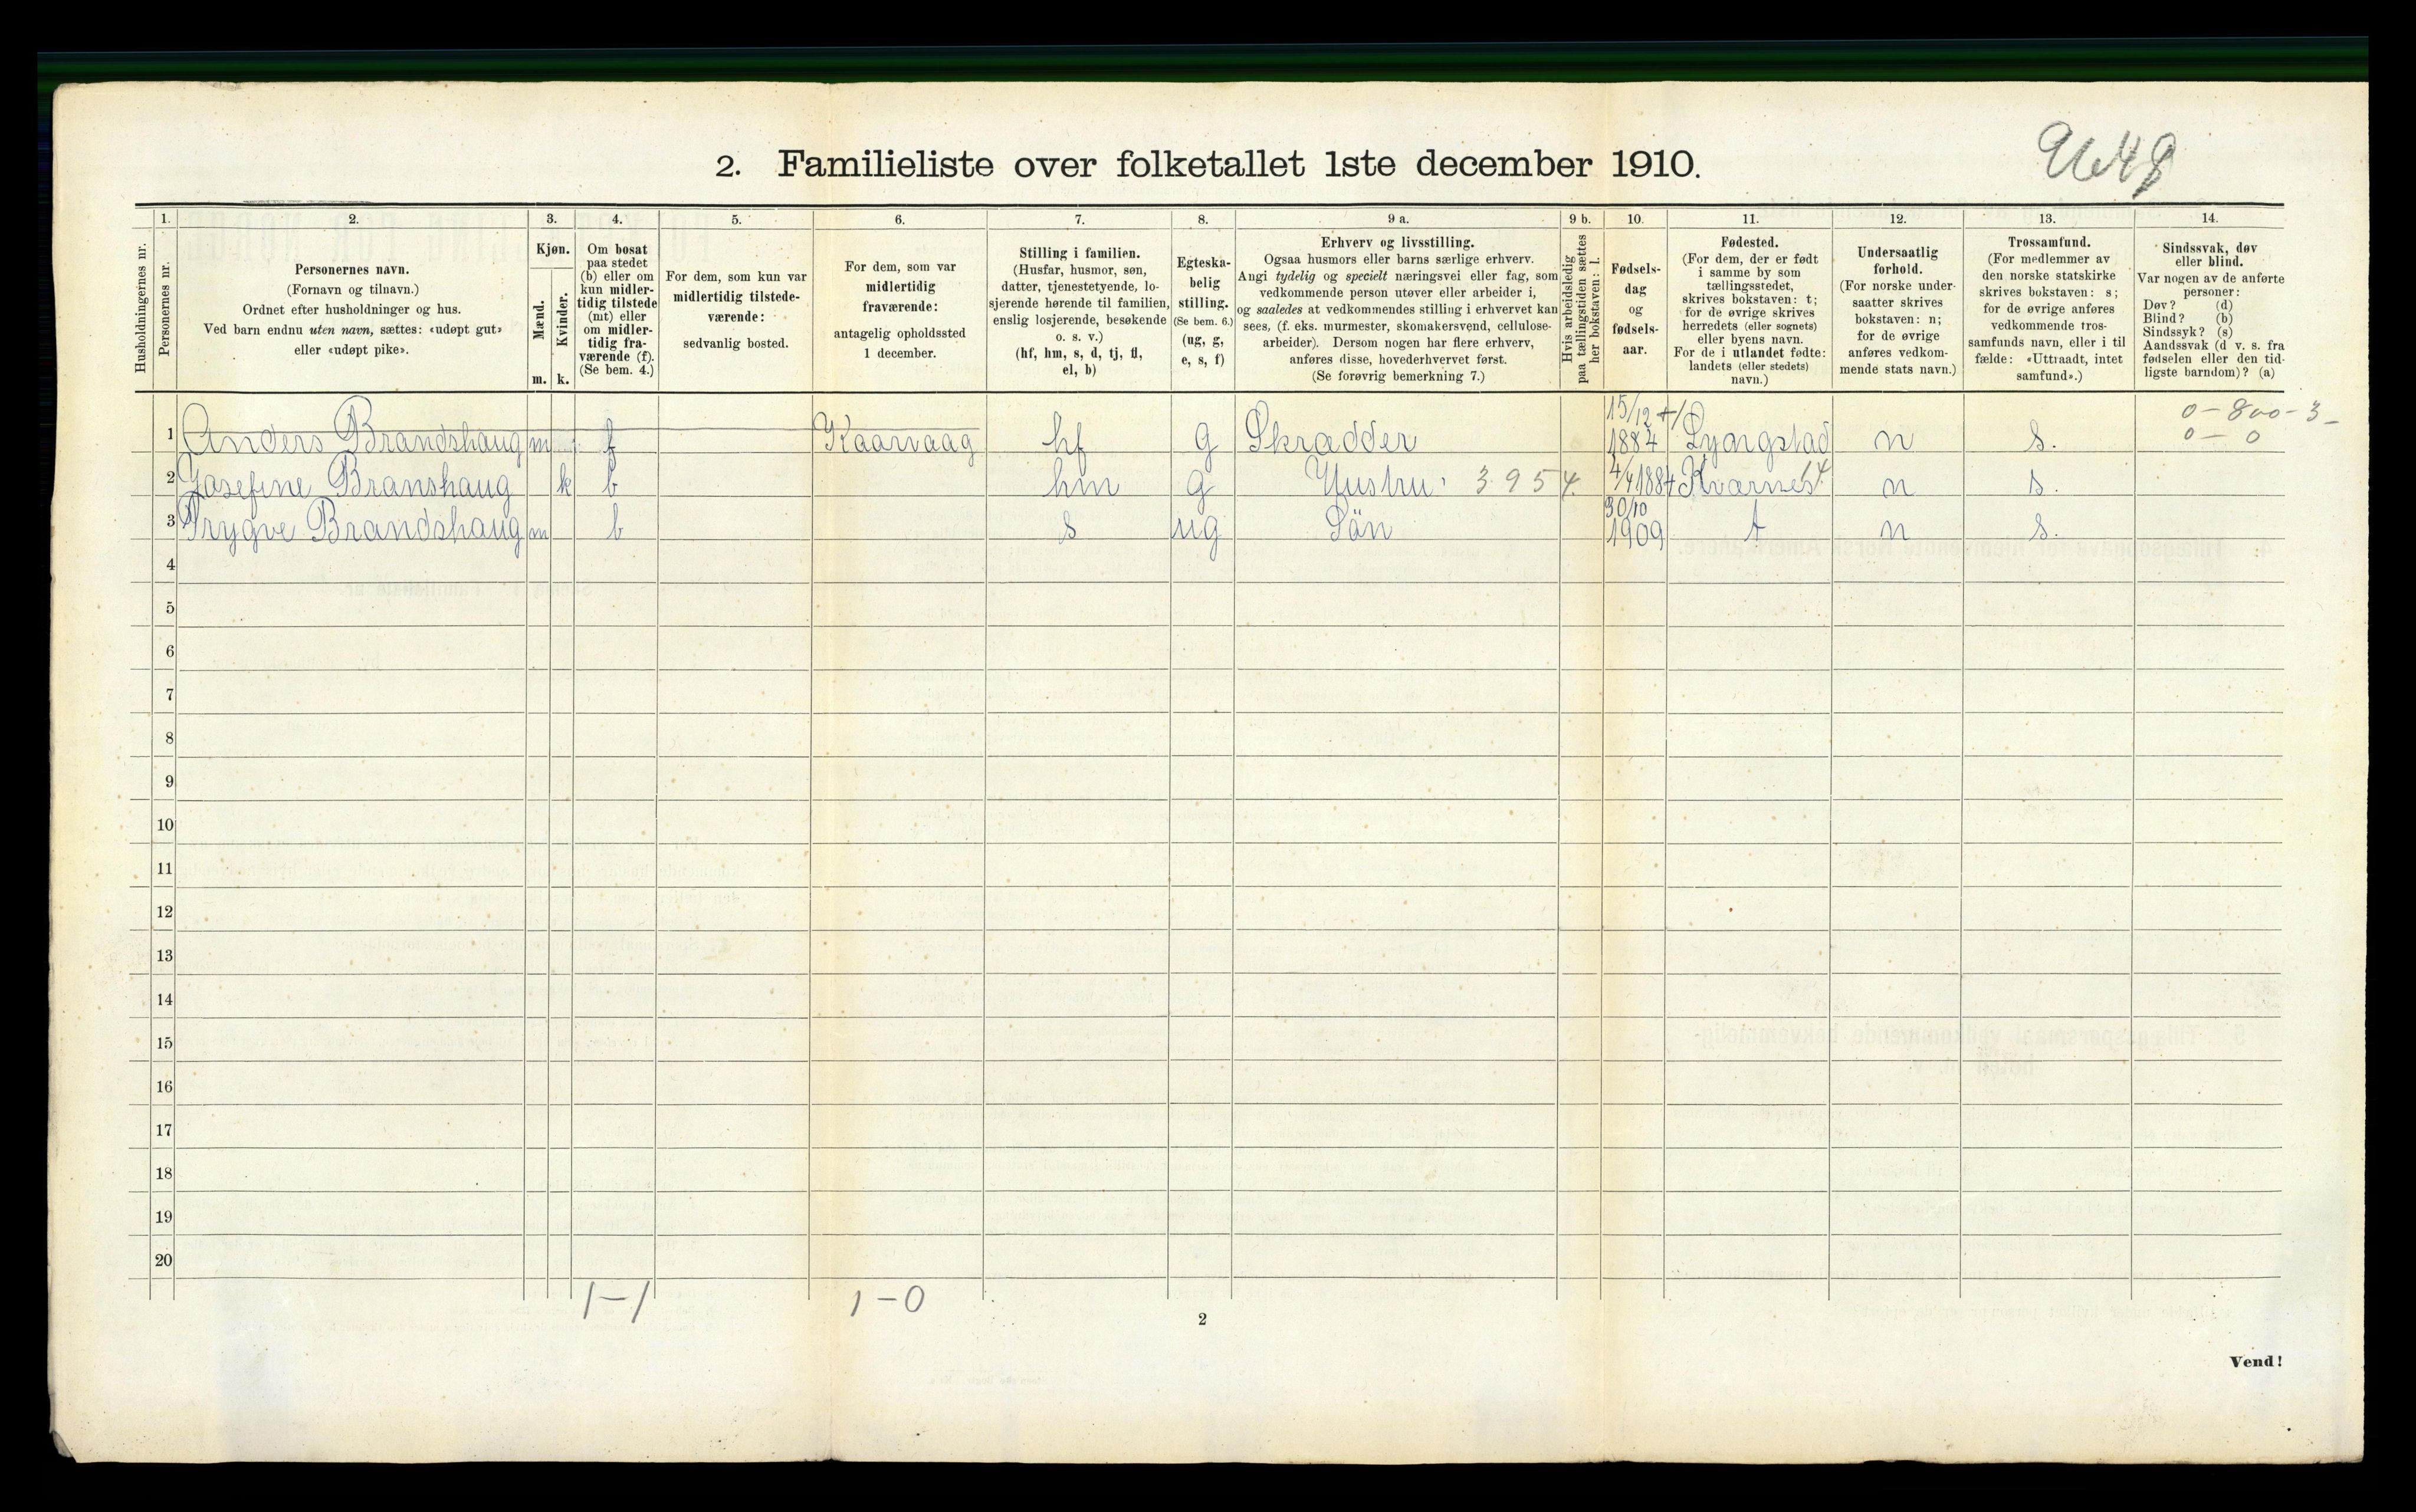 2. Familieliste over folketallet 1ste december 1910.
1. 2. 3. 4. 5. 6. 7. 8. 9 a. 9 b. 10. 11. 12. 13. 14.
Husholdningernes nr.
Personernes nr.
Personernes navn.
(Fornavn og tilnavn.)
Ordnet efter husholdninger og hus.
Ved barn endnu uten navn, sættes: «udøpt gut»
eller «udøpt pike».
Kjøn.
Mænd.
Kvinder.
m. k.
Om bosat
paa stedet
(b) eller om
kun midler-
tidig tilstede
(mt) eller
om midler-
tidig fra-
værende (f).
(Se bem. 4.)
For dem, som kun var
midlertidig tilstede-
værende:
sedvanlig bosted.
For dem, som var
midlertidig
fraværende:
antagelig opholdssted
1 december.
Stilling i familien.
(Husfar, husmor, søn,
datter, tjenestetyende, lo-
sjerende hørende til familien,
enslig losjerende, besøkende
o. s. v.)
(hf, hm, s, d, tj, fl,
el, b)
Egteska-
belig
stilling.
(Se bem. 6.)
(ug, g,
e, s, f)
Erhverv og livsstilling.
Ogsaa husmors eller barns særlige erhverv.
Angi tydelig og specielt næringsvei eller fag, som
vedkommende person utøver eller arbeider i,
og saaledes at vedkommendes stilling i erhvervet kan
sees, (f. eks. murmester, skomakersvend, cellulose-
arbeider). Dersom nogen har flere erhverv,
anføres disse, hovederhvervet først.
(Se forøvrig bemerkning 7.)
Hvis arbeidsledig
paa tællingstiden sættes
her bokstaven: l.
Fødsels-
dag
og
fødsels-
aar.
Fødested.
(For dem, der er født
i samme by som
tællingsstedet,
skrives bokstaven: t;
for de øvrige skrives
herredets (eller sognets)
eller byens navn.
For de i utlandet fødte:
landets (eller stedets)
navn.)
Undersaatlig
forhold.
(For norske under-
saatter skrives
bokstaven: n;
for de øvrige
anføres vedkom-
mende stats navn.)
Trossamfund.
(For medlemmer av
den norske statskirke
skrives bokstaven: s;
for de øvrige anføres
vedkommende tros-
samfunds navn, eller i til
fælde: «Uttraadt, intet
samfund».)
Sindssvak, døv
eller blind.
Var nogen av de anførte
personer:
Døv? (d)
Blind? (b)
Sindssyk? (s)
Aandssvak (d v. s. fra
fødselen eller den tid-
ligste barndom)? (a)
15/12 0-800-3-
1 Anders Brandshaug m f Kaarvaag hf g Skradder 1884 Lyngstad n s. 0-0
2 Josefine Branshaug k b hm g Hustru 3954. 4/4 1884 Kvarnes 14 n s.
30/10
3 Trygve Brandshaug m b s ug Sän 1909 t n s.
4
5
6
7
8
9
10
11
12
13
14
15
16
17
18
19
20
1-1 1-0
2
Vend!